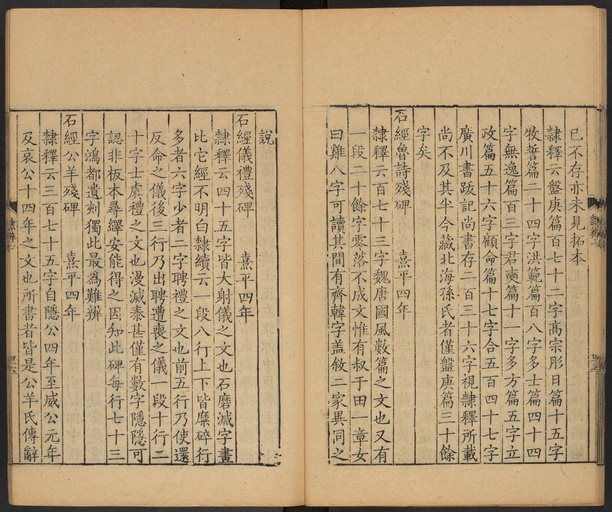 已不存亦未見拓本
隸釋云盤庚篇百七十二字髙宗肜日篇十五字
牧誓篇二十四字洪範篇百八字多士篇四十四
字無逸篇百三字君奭篇十一字多方篇五字立
政篇五十六字顧命篇十七字合五百四十七字
廣川書跋記尚書存二百三十六字視隸釋所載
尚不及其半今藏北海孫氏者僅盤庚篇三十餘
字矣
石經魯詩殘碑　熹平四年
隸釋云百七十三字魏唐國風數篇之文也又有
一段二十餘字零落不成文惟有叔于田一章女
曰雞八字可讀其間有齊韓字蓋敘二家異同之
說
石經儀禮殘碑　熹平四年
隸釋云四十五字皆大射儀之文也石磨滅字畫
比它經不明白隸續云一段八行上下皆糜碎行
多者六字少者二字聘禮之文也前五行乃使還
反命之儀後三行乃出聘遭喪之儀一段十行二
十字士虞禮之文也漫滅泰甚僅有數字隱隱可
認非板本尋繹安能得之因知此碑每行七十三
字鴻都遺刻獨此最為難辨
石經公羊殘碑　熹平四年
隸釋云三百七十五字自隱公四年至威公元年
及哀公十四年之文也所書者皆是公羊氏傳辭